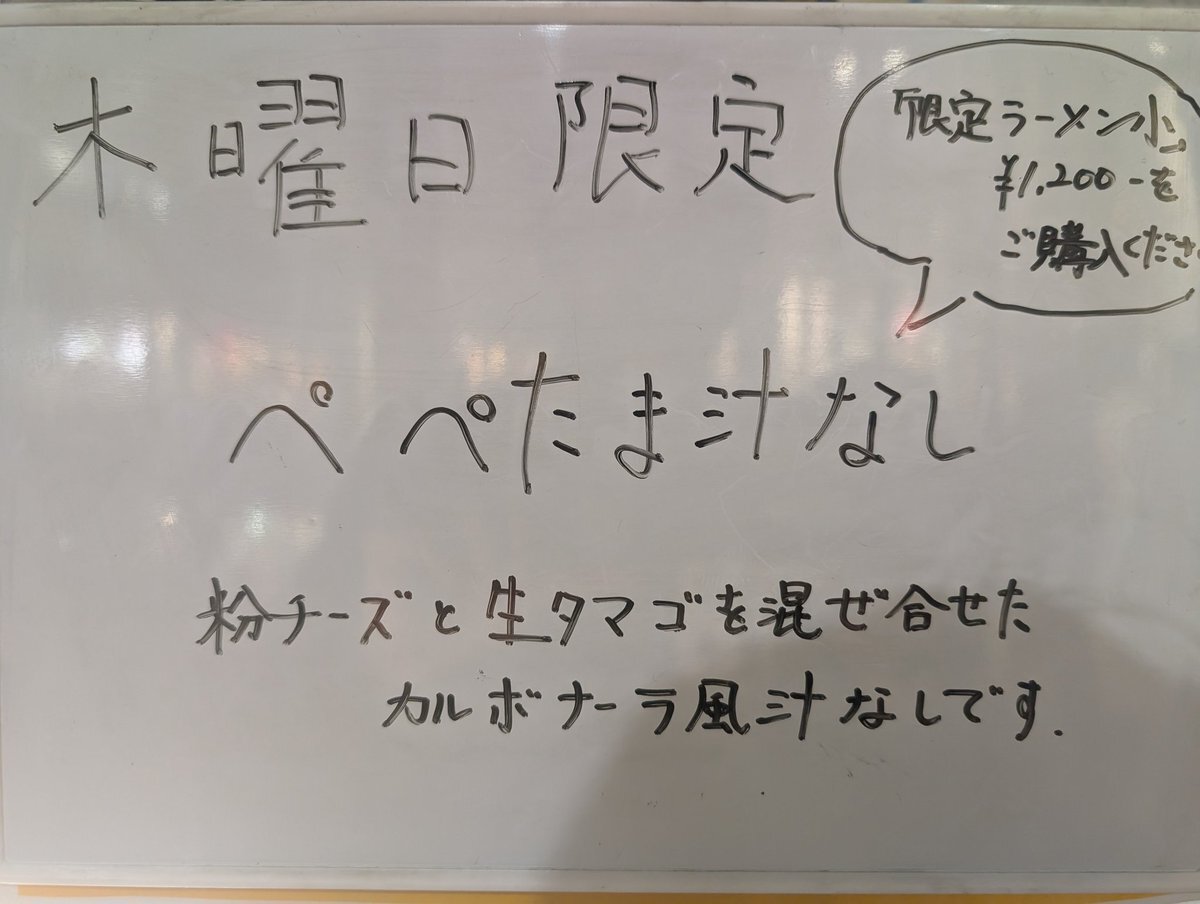 木曜日限定
「限定ラーメン小」
¥1,200-を
ご購入くださ
ペペたま汁なし
粉チーズと生タマゴを混ぜ合せた
カルボナーラ風汁なしです.